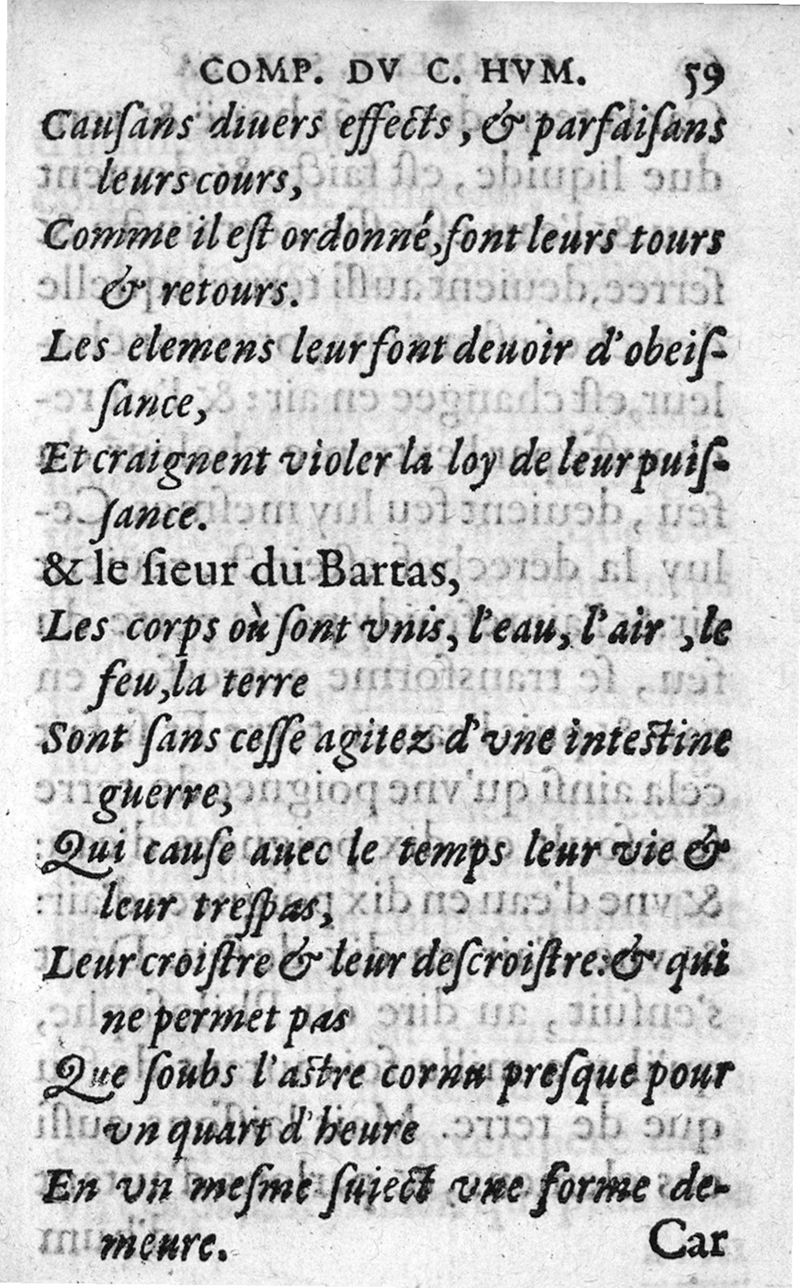 COMP. DV C. HVM. 59
Cauſans diuers effects, & parfaiſans
leurs cours,
Comme il eſt ordonné, font leurs tours
& retours.
Les elemens leur font deuoir d'obeiſ-
ſance,
Et craignent violer la loy de leur puiſ-
ſance.
& le ſieur du Bartas,
Les corps où ſont vnis, l'eau, l'air, le
feu, la terre
Sont ſans ceſſe agitez d'vne inteſtine
guerre,
Qui cauſe auec le temps leur vie &
leur treſpas,
Leur croiſtre & leur deſcroiſtre: & qui
ne permet pas
Que ſoubs l'aſtre cornu preſque pour
vn quart d'heure
En vn meſme ſuiect vne forme de-
meure.
Car